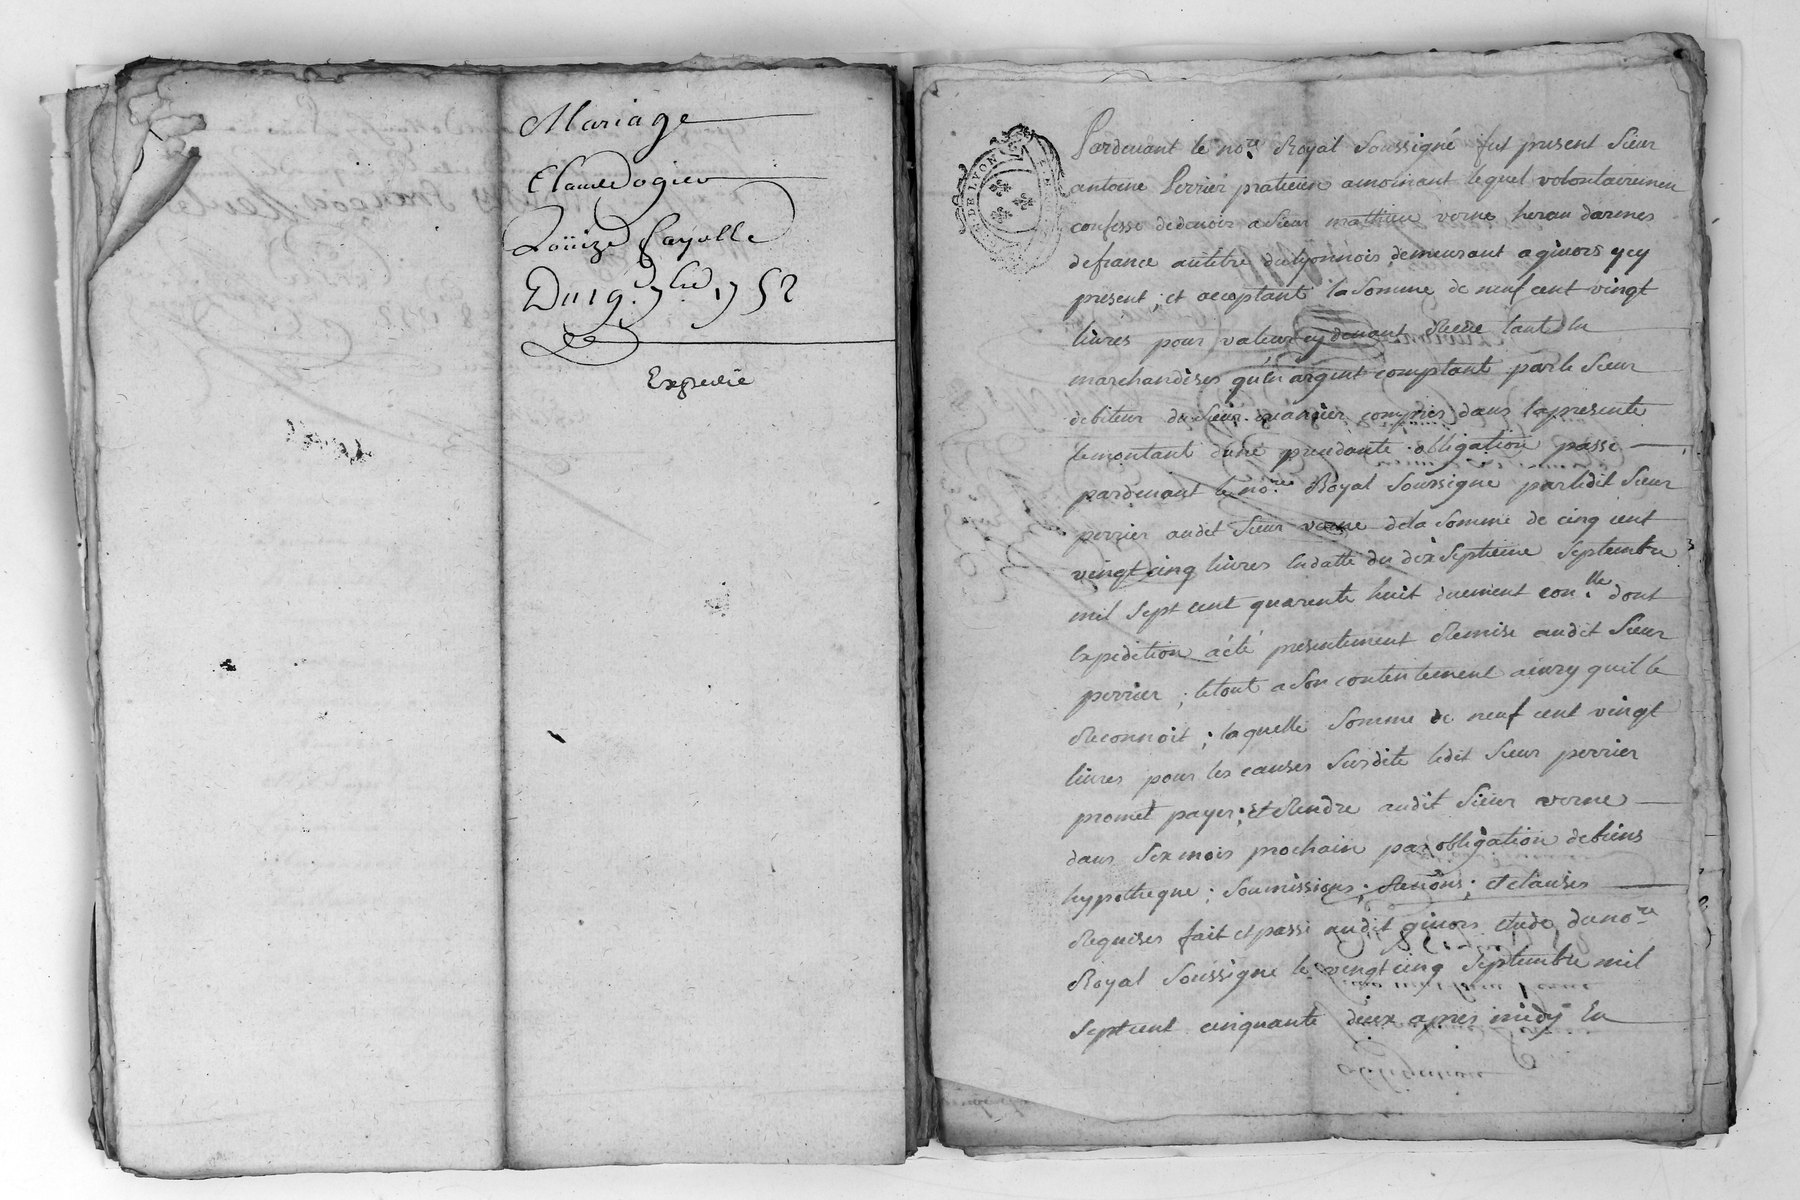 Mariage
Claude Dogier
Loüize Fayolle
Du 19.e 7bre 1752
Expediė
DE LYON
Pardevant le no.re Royal Soussigné fut present Sieur
antoine Perrier praticien amornant lequel volontairemen
confesse de devoir a Sieur mathieu vorne herau darmes
de france autitre du lyonnois demeurant a givors ycy
present, et acceptant la Somme de neuf cent vingt
livres pour valeur cy devant Receüe tant en
marchandises qu'en argent comptant par le Sieur
debiteur du Sieur creancier compries dans la presente
le montant dune precedante obligation passé
pardevant le no.re Royal Soussigne par ledit Sieur
perrier audit Sieur vorne de la Somme de cinq cent
vingt cinq livres en datte du dix Septieme Septembre
mil Sept cent quarente huit duement con.lle dont
Expedition a été presentement Remise audit Sieur
perrier ; le tout a Son contentement ainsy quil le
Reconnoit ; laquelle Somme de neuf cent vingt
livres pour les causes Susdite ledit Sieur perrier
promet payer ; et Rendre audit Sieur vorne
dans Six mois prochain par obligation de biens
hypotheque ; Soumissions ; Renons ; et clauses
Requises fait et passé audit givors etude du no.re
Royal Soussigne le vingt cinq Septembre mil
Sept cent cinquante deux apres midy En